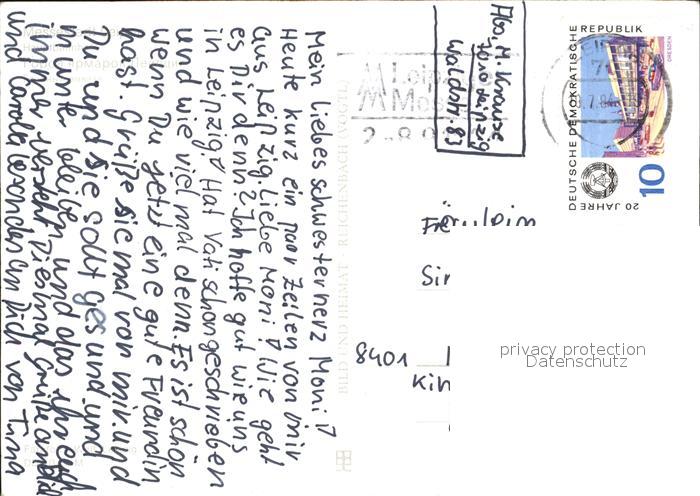 Mein liebes schwesternherz Moni!
Heute kurz ein paar Zeilen von mir
aus Leipzig. Liebe Moni! Wie geht
es Dir denn? Ich hoffe gut wie uns
in Leipzig? Hat Vati schon geschrieben
und wie viel mal denn. Es ist schön
wenn Du jetzt eine gute Freundin
hast. Grüße sie mal von mir und
Du und sie sollt gesund und
munter bleiben und das ihr euch
immer versteht diesmal Grüße an
und Carola besonders an Dich von
Abs. M. Krause
Leipzig
Waldstr. 83
Leipzig
Mess
2.-8.9
DEUTSCHE DEMOKRATISCHE
REPUBLIK
DRESDEN
20 JAHRE
10
Fräulein
8401
Kin
BILD UND HEIMAT · REICHENBACH (VOGTL)
privacy protection
Datenschutz